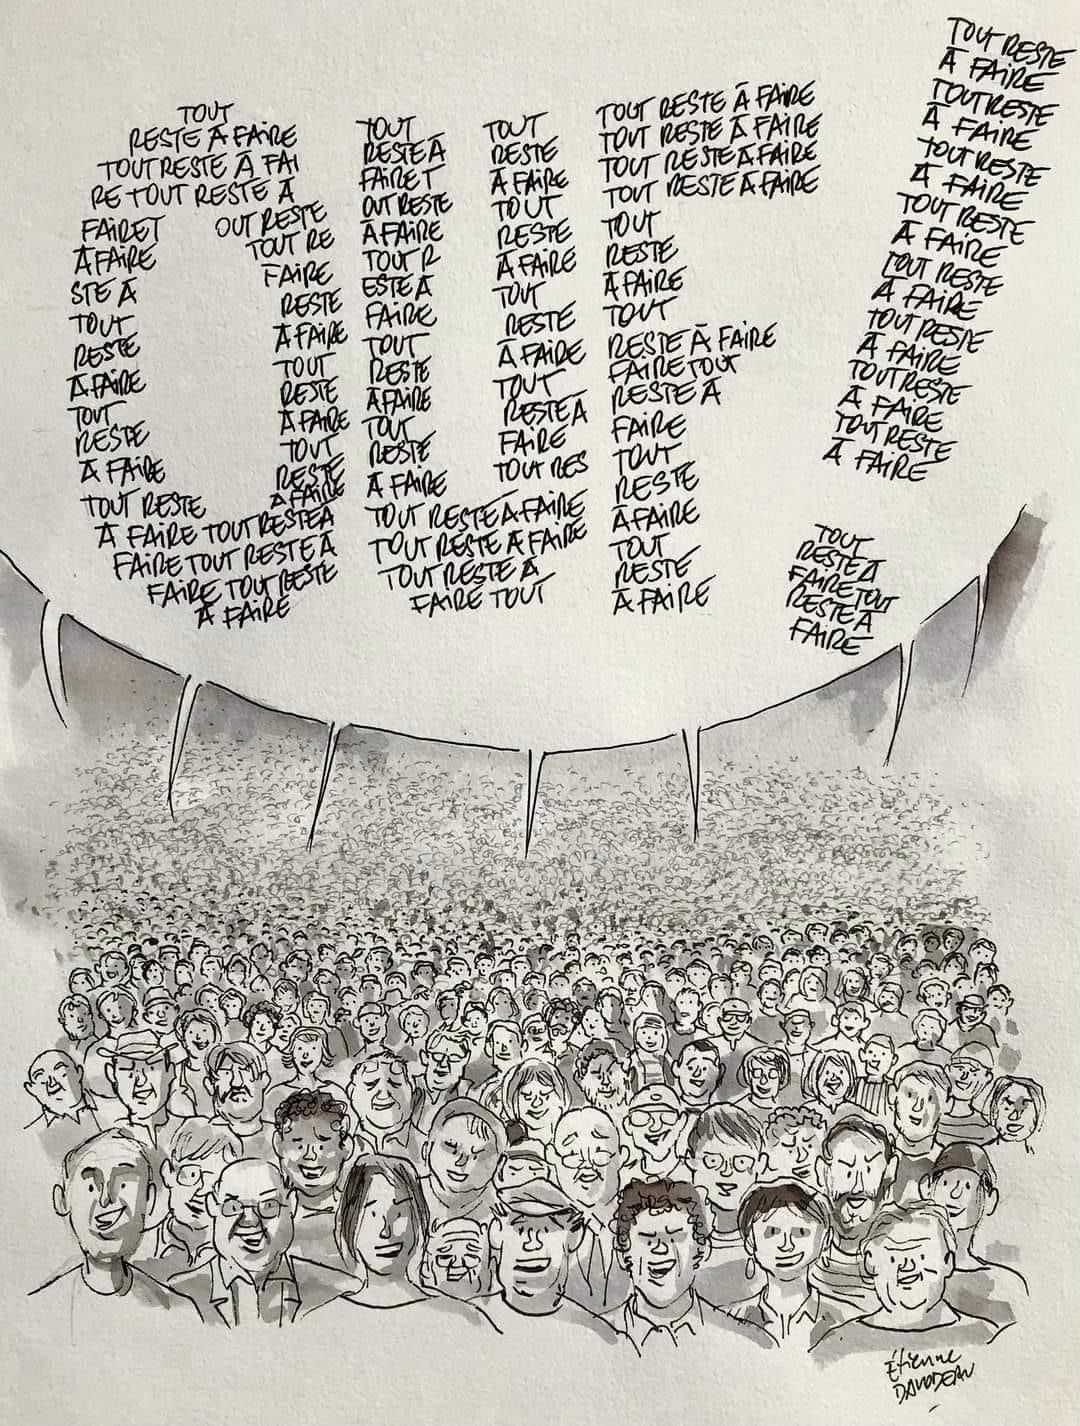 TOUT
RESTE À FAIRE
TOUT RESTE À FAI
RE TOUT RESTE À
FAIRE T OUT RESTE
À FAIRE TOUT RE
STE À FAIRE
TOUT RESTE
RESTE À FAIRE
À FAIRE TOUT
TOUT RESTE
RESTE À FAIRE
À FAIRE TOUT
RESTE
TOUT RESTE À FAIRE
À FAIRE TOUT RESTE À
FAIRE TOUT RESTE À
FAIRE TOUT RESTE
À FAIRE
TOUT
RESTE À
FAIRE T
OUT RESTE
À FAIRE
TOUT R
ESTE À
FAIRE
TOUT
RESTE
À FAIRE
TOUT
RESTE
À FAIRE
TOUT
RESTE
À FAIRE
TOUT
RESTE
À FAIRE
TOUT
RESTE
À FAIRE
TOUT
RESTE À
FAIRE
TOUT RES
TOUT RESTE À FAIRE
TOUT RESTE À FAIRE
TOUT RESTE À
FAIRE TOUT
TOUT RESTE À FAIRE
TOUT RESTE À FAIRE
TOUT RESTE À FAIRE
TOUT RESTE À FAIRE
TOUT
RESTE
À FAIRE
TOUT
RESTE À FAIRE
FAIRE TOUT
RESTE À
FAIRE
TOUT
RESTE
À FAIRE
TOUT
RESTE
À FAIRE
TOUT RESTE
À FAIRE
TOUT RESTE
À FAIRE
TOUT RESTE
À FAIRE
TOUT RESTE
À FAIRE
TOUT RESTE
À FAIRE
TOUT RESTE
À FAIRE
TOUT RESTE
À FAIRE
TOUT RESTE
À FAIRE
TOUT
RESTE À
FAIRE TOUT
RESTE À
FAIRE
Étienne
DAVODEAU